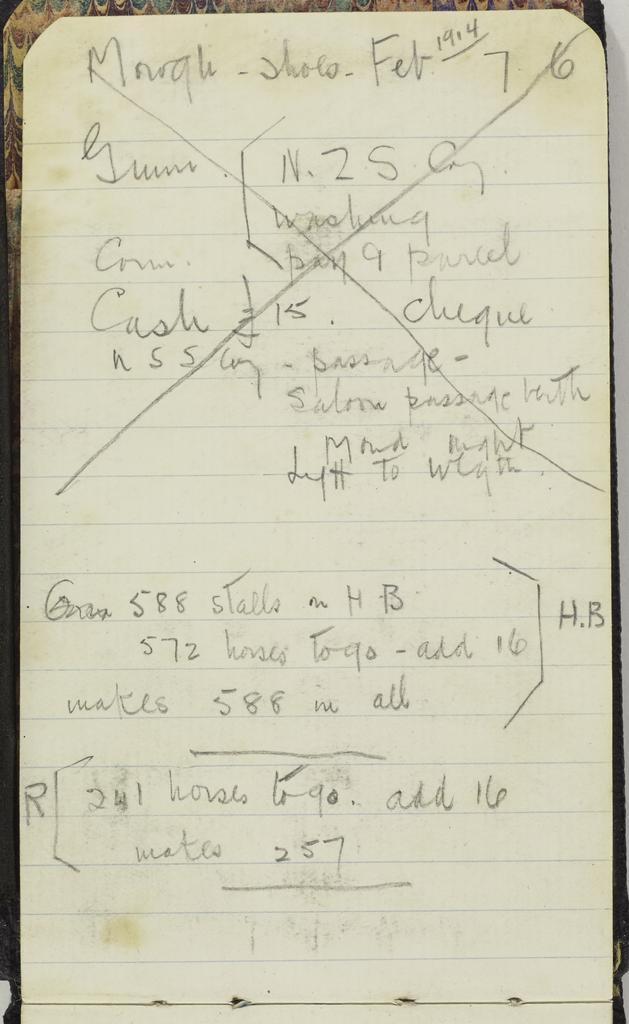 - shoes - Feb 1914 7 6
N. Z S Coy.
washing
Corn. pay 9 parcel
Cash £ 15. cheque
N S S Coy - passage -
Saloon passage berth
Mond night
Lytt to Wlgtn.
588 stalls on H B
572 horses to go - add 16
makes 588 in all
H.B
R 241 horses to go. add 16
makes 257